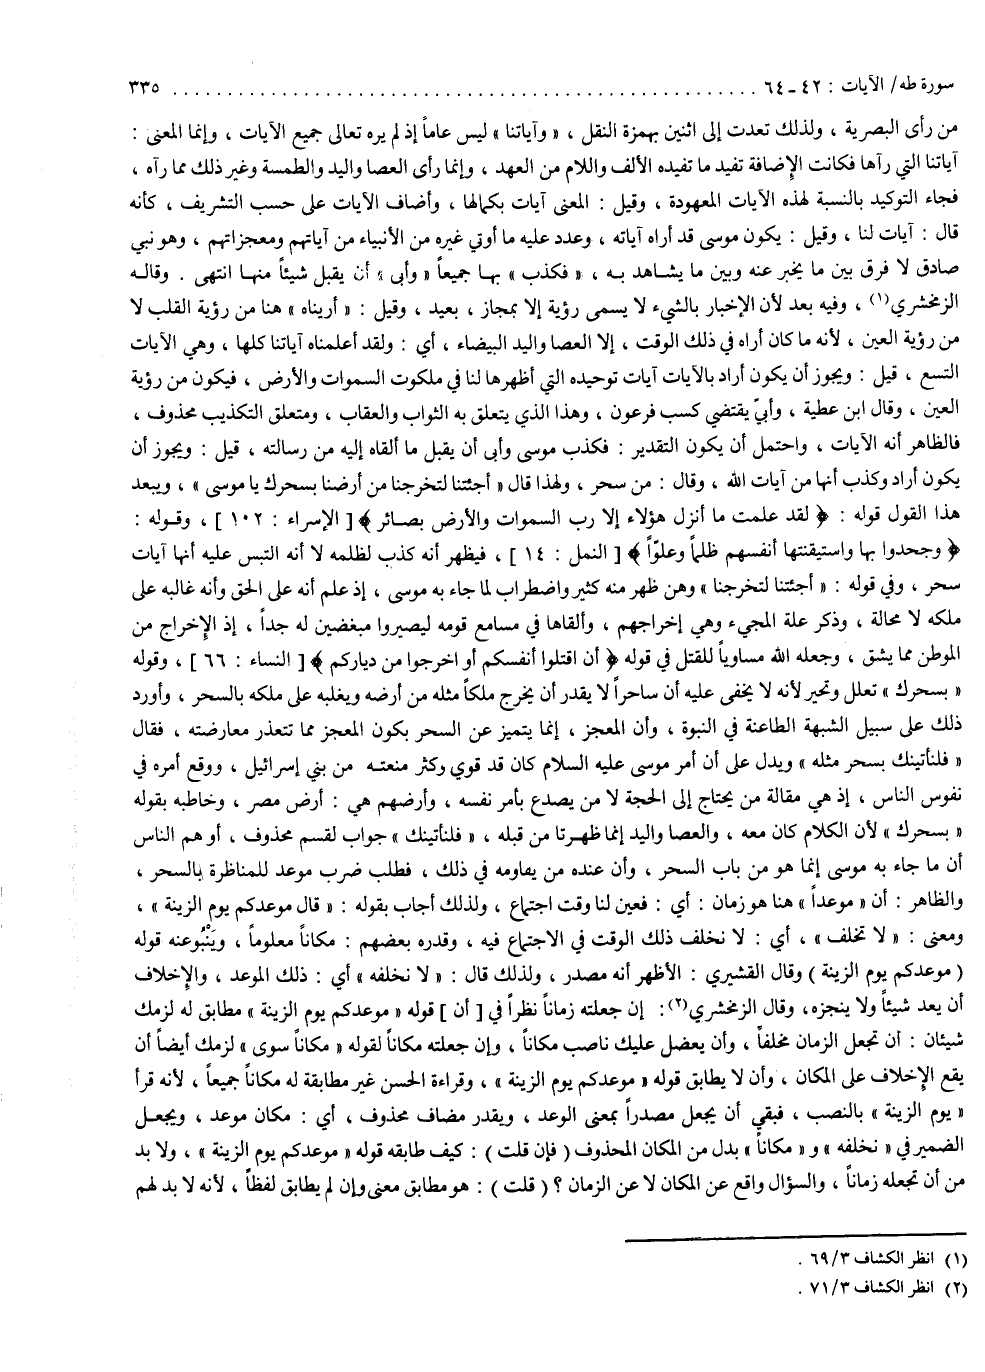 سورة طه/ الآيات : ٤٢ ـ ٦٤ ........................................................ ٣٣٥
من رأى البصرية ، ولذلك تعدت إلى اثنين بهمزة النقل ، « وآياتنا » ليس عاماً إذ لم يره تعالى جميع الآيات ، وإنما المعنى :
آياتنا التي رآها فكانت الإضافة تفيد ما تفيده الألف واللام من العهد ، وإنما رأى العصا واليد والطمسة وغير ذلك مما رآه ،
فجاء التوكيد بالنسبة لهذه الآيات المعهودة ، وقيل : المعنى آيات بكمالها ، وأضاف الآيات على حسب التشريف ، كأنه
قال : آيات لنا ، وقيل : يكون موسى قد أراه آياته ، وعدد عليه ما أوتي غيره من الأنبياء من آياتهم ومعجزاتهم ، وهو نبي
صادق لا فرق بين ما يخبر عنه وبين ما يشاهد به ، « فكذب » بها جميعاً « وأبى » أن يقبل شيئاً منها انتهى . وقاله
الزمخشري(١) ، وفيه بعد لأن الإخبار بالشيء لا يسمى رؤية إلا بمجاز ، بعيد ، وقيل : « أريناه » هنا من رؤية القلب لا
من رؤية العين ، لأنه ما كان أراه في ذلك الوقت ، إلا العصا واليد البيضاء ، أي : ولقد أعلمناه آياتنا كلها ، وهي الآيات
التسع ، قيل : ويجوز أن يكون أراد بالآيات آيات توحيده التي أظهرها لنا في ملكوت السموات والأرض ، فيكون من رؤية
العين ، وقال ابن عطية ، وأبيّ يقتضي كسب فرعون ، وهذا الذي يتعلق به الثواب والعقاب ، ومتعلق التكذيب محذوف ،
فالظاهر أنه الآيات ، واحتمل أن يكون التقدير : فكذب موسى وأبى أن يقبل ما ألقاه إليه من رسالته ، قيل : ويجوز أن
يكون أراد وكذب أنها من آيات الله ، وقال : من سحر ، ولهذا قال « أجئتنا لتخرجنا من أرضنا بسحرك يا موسى » ، ويبعد
هذا القول قوله : ﴿ لقد علمت ما أنزل هؤلاء إلا رب السموات والأرض بصائر ﴾ [ الإسراء : ١٠٢ ] ، وقوله :
﴿ وجحدوا بها واستيقنتها أنفسهم ظلماً وعلوّاً ﴾ [ النمل : ١٤ ] ، فيظهر أنه كذب لظلمه لا أنه التبس عليه أنها آيات
سحر ، وفي قوله : « أجئتنا لتخرجنا » وهن ظهر منه كثير واضطراب لما جاء به موسى ، إذ علم أنه على الحق وأنه غالبه على
ملكه لا محالة ، وذكر علة المجيء وهي إخراجهم ، وألقاها في مسامع قومه ليصيروا مبغضين له جداً ، إذ الإخراج من
الموطن مما يشق ، وجعله الله مساوياً للقتل في قوله ﴿ أن اقتلوا أنفسكم أو اخرجوا من دياركم ﴾ [ النساء : ٦٦ ] ، وقوله
« بسحرك » تعلل وتحير لأنه لا يخفى عليه أن ساحراً لا يقدر أن يخرج ملكاً مثله من أرضه ويغلبه على ملكه بالسحر ، وأورد
ذلك على سبيل الشبهة الطاعنة في النبوة ، وأن المعجز ، إنما يتميز عن السحر بكون المعجز مما تتعذر معارضته ، فقال
« فلنأتينك بسحر مثله » ويدل على أن أمر موسى عليه السلام كان قد قوي وكثر منعته من بني إسرائيل ، ووقع أمره في
نفوس الناس ، إذ هي مقالة من يحتاج إلى الحجة لا من يصدع بأمر نفسه ، وأرضهم هي : أرض مصر ، وخاطبه بقوله
« بسحرك » لأن الكلام كان معه ، والعصا واليد إنما ظهرتا من قبله ، « فلنأتينك » جواب لقسم محذوف ، أو هم الناس
أن ما جاء به موسى إنما هو من باب السحر ، وأن عنده من يقاومه في ذلك ، فطلب ضرب موعد للمناظرة بالسحر ،
والظاهر : أن « موعداً » هنا هو زمان : أي : فعين لنا وقت اجتماع ، ولذلك أجاب بقوله : « قال موعدكم يوم الزينة » ،
ومعنى : « لا تخلف » ، أي : لا نخلف ذلك الوقت في الاجتماع فيه ، وقدره بعضهم : مكاناً معلوماً ، ويَنْبُو عنه قوله
( موعدكم يوم الزينة ) وقال القشيري : الأظهر أنه مصدر ، ولذلك قال : « لا نخلفه » أي : ذلك الموعد ، والإخلاف
أن يعد شيئاً ولا ينجزه، وقال الزمخشري(٢): إن جعلته زماناً نظراً في [ أن ] قوله « موعدكم يوم الزينة » مطابق له لزمك
شيئان : أن تجعل الزمان مخلفاً ، وأن يعضل عليك ناصب مكاناً ، وإن جعلته مكاناً لقوله « مكاناً سوى » لزمك أيضاً أن
يقع الإخلاف على المكان ، وأن لا يطابق قوله « موعدكم يوم الزينة » ، وقراءة الحسن غير مطابقة له مكاناً جميعاً ، لأنه قرأ
« يوم الزينة » بالنصب ، فبقي أن يجعل مصدراً بمعنى الوعد ، ويقدر مضاف محذوف ، أي : مكان موعد ، ويجعل
الضمير في « نخلفه » و « مكاناً » بدل من المكان المحذوف ( فإن قلت ) : كيف طابقه قوله « موعدكم يوم الزينة » ، ولا بد
من أن تجعله زماناً ، والسؤال واقع عن المكان لا عن الزمان ؟ ( قلت ) : هو مطابق معنى وإن لم يطابق لفظاً ، لأنه لا بد لهم
(١) انظر الكشاف ٦٩/٣ .
(٢) انظر الكشاف ٧١/٣ .